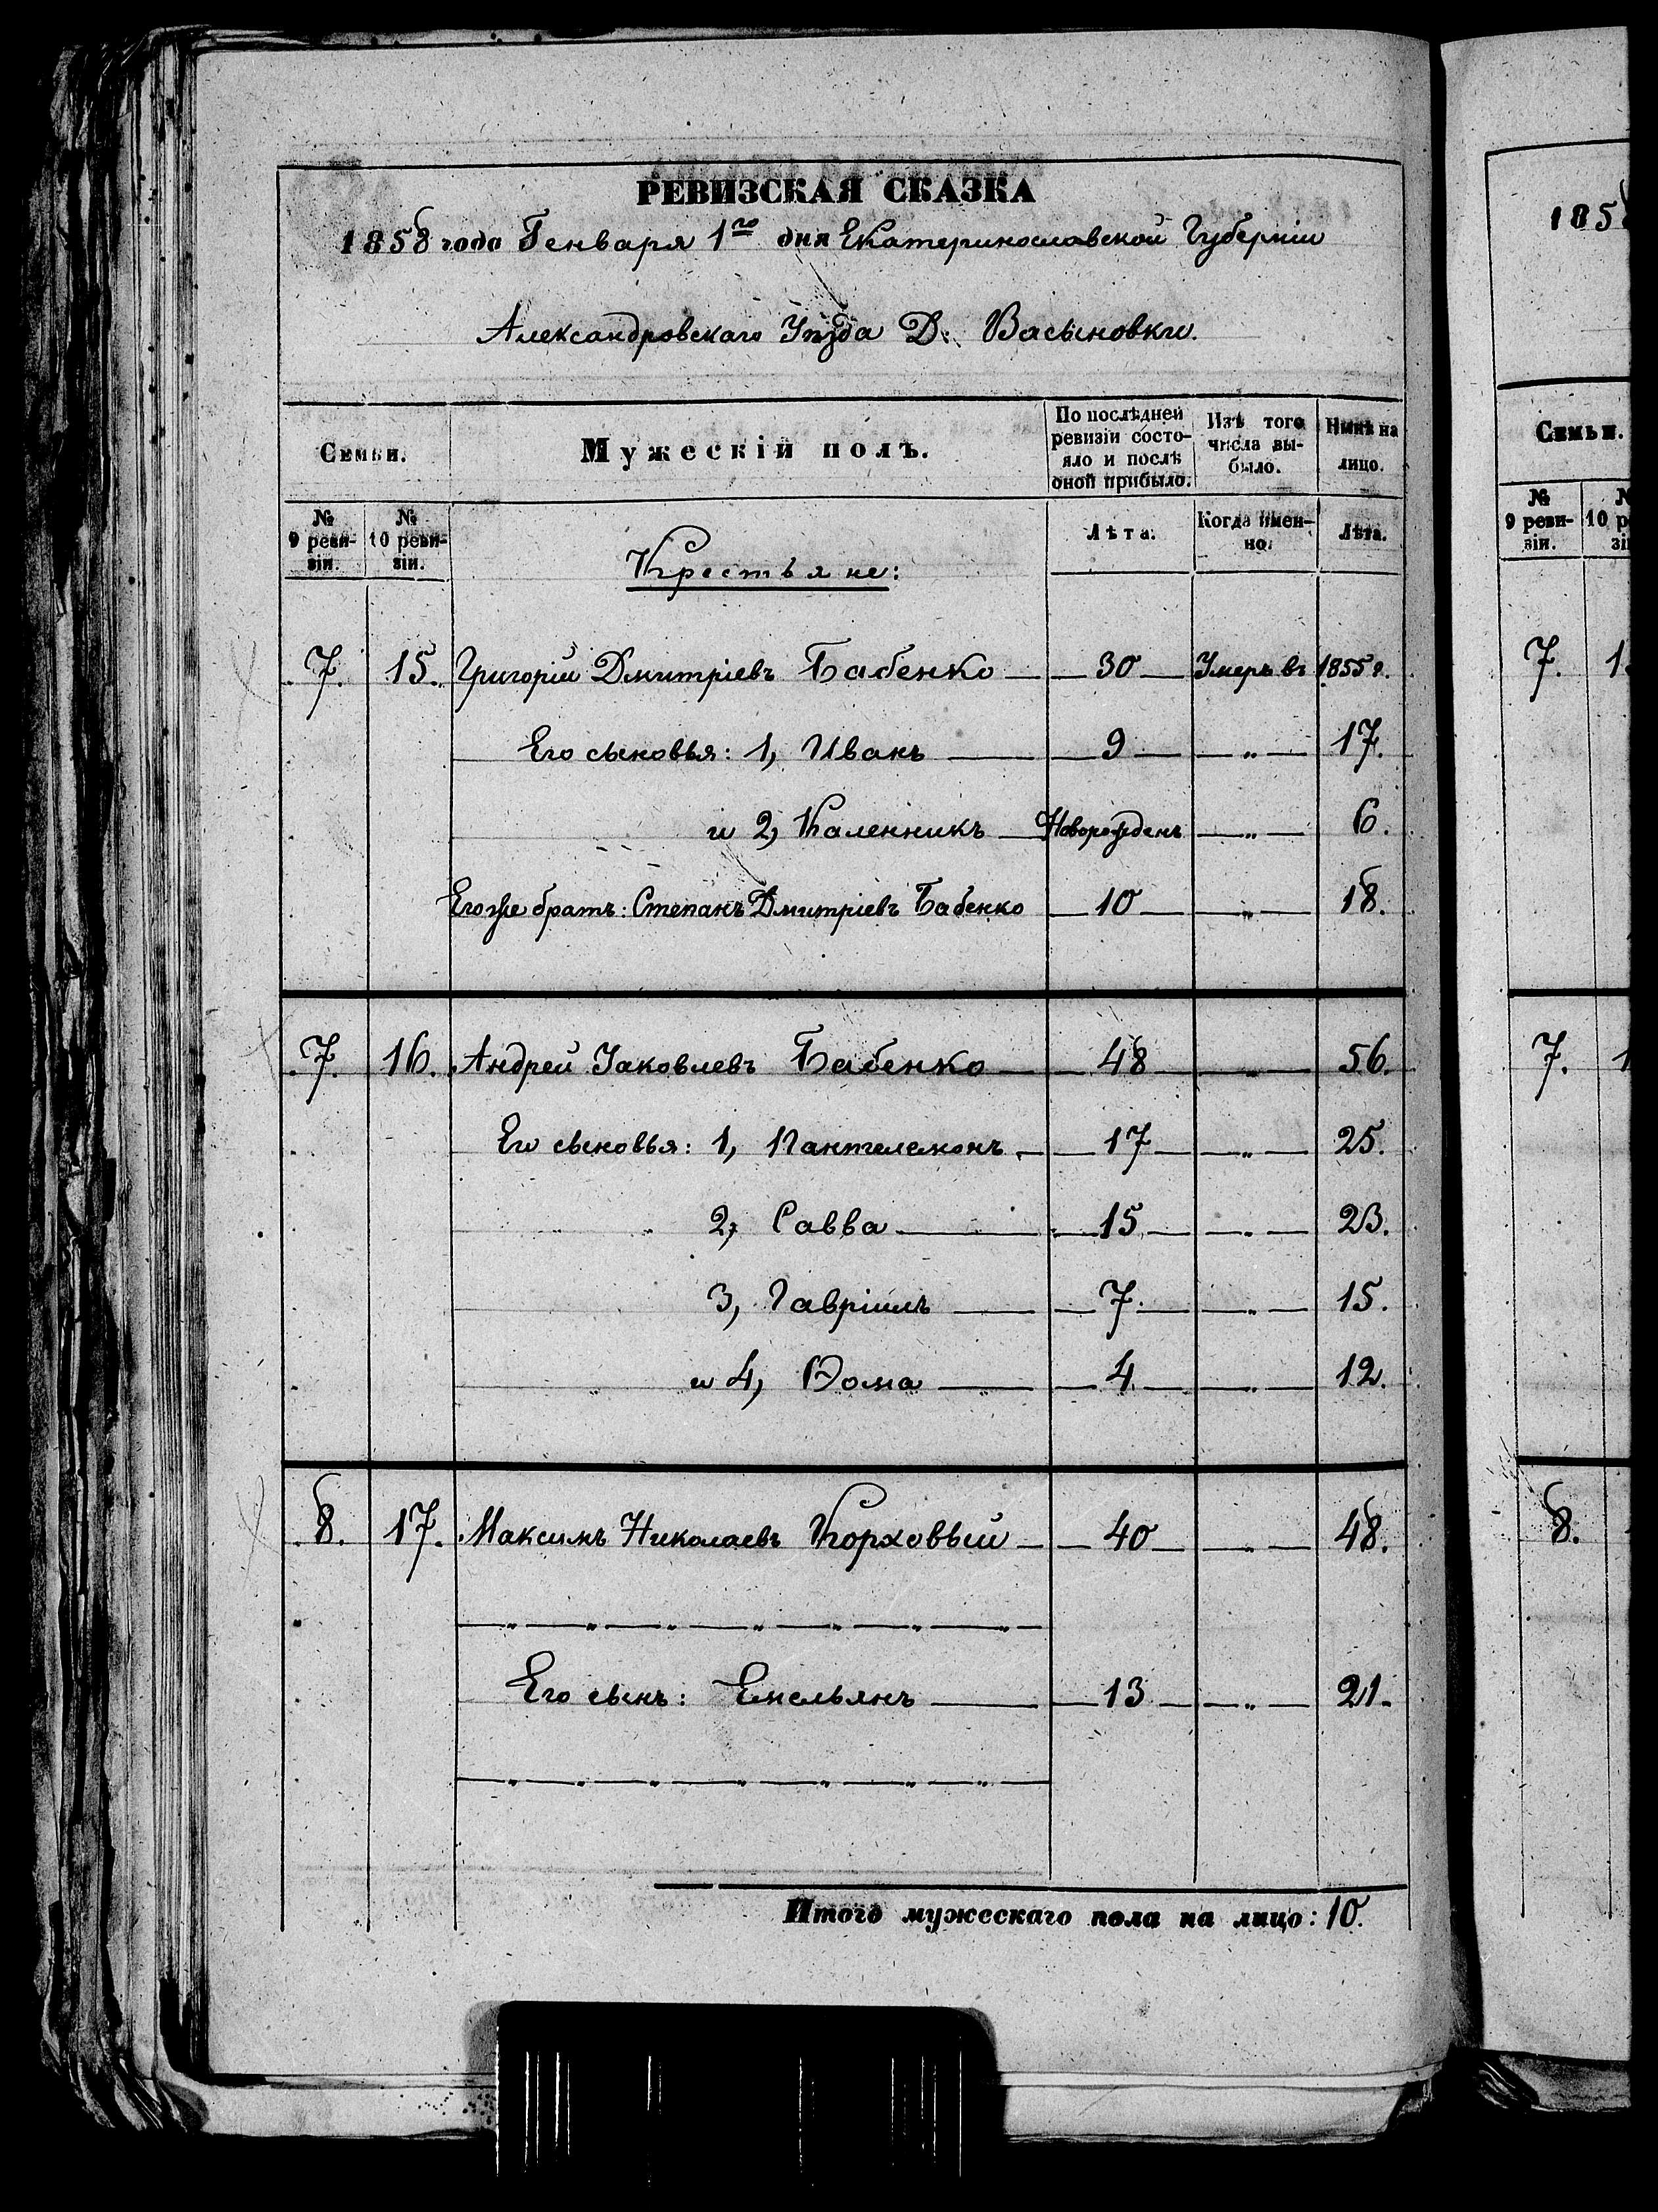 РЕВИЗСКАЯ СКАЗКА
1858 года Генваря 1го дня Екатеринославской Губерніи
Александровскаго Уѣзда Д. Васыновки.
Семьи. Мужескій полъ. По послѣдней ревизіи состояло и послѣ оной прибыло. Изъ того числа выбыло. Нынѣ на лицо.
№ 9 ревизіи. № 10 ревизіи. Крестьяне: Лѣта. Когда именно. Лѣта.
7. 15. Григорій Дмитріевъ Бабенко 30 Умеръ въ 1855 г.
Его сыновья: 1, Иванъ 9 — „ — 17.
и 2, Каленникъ Новорожденъ — „ — 6.
Его же братъ: Степанъ Дмитріевъ Бабенко 10 — „ — 18.
7. 16. Андрей Яковлевъ Бабенко 48 — „ — 56.
Его сыновья: 1, Пантелемонъ 17 — „ — 25.
2, Савва 15 — „ — 23.
3, Гавріилъ 7 — „ — 15.
и 4, Фома 4 — „ — 12.
8. 17. Максимъ Николаевъ Корховый 40 — „ — 48.
Его сынъ: Емельянъ 13 — „ — 21.
Итого мужескаго пола на лицо: 10.
185
Семьи.
№ 9 ревизіи.
7.
7.
8.